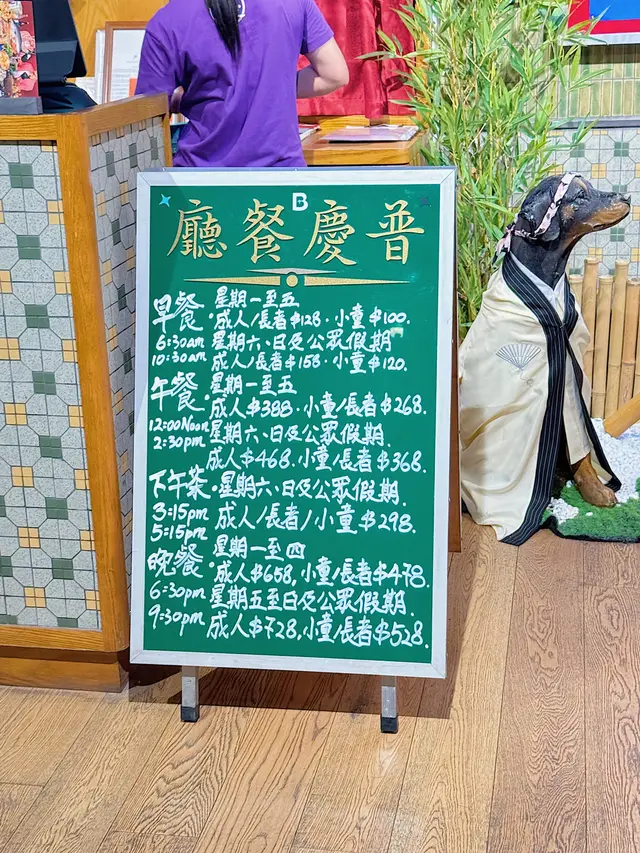 B
廳餐慶普
早餐 星期一至五
・成人/長者$128・小童$100.
6:30am 星期六、日及公眾假期
10:30am 成人/長者$158・小童$120.
午餐 ・星期一至五
成人$388.小童/長者$268.
12:00Noon 星期六、日及公眾假期.
2:30pm 成人$468.小童/長者$368.
下午茶・星期六、日及公眾假期.
3:15pm 成人/長者/小童$298.
5:15pm
晚餐 星期一至四
・成人$658,小童/長者$478.
6:30pm 星期五至日及公眾假期.
9:30pm 成人$728,小童/長者$528.